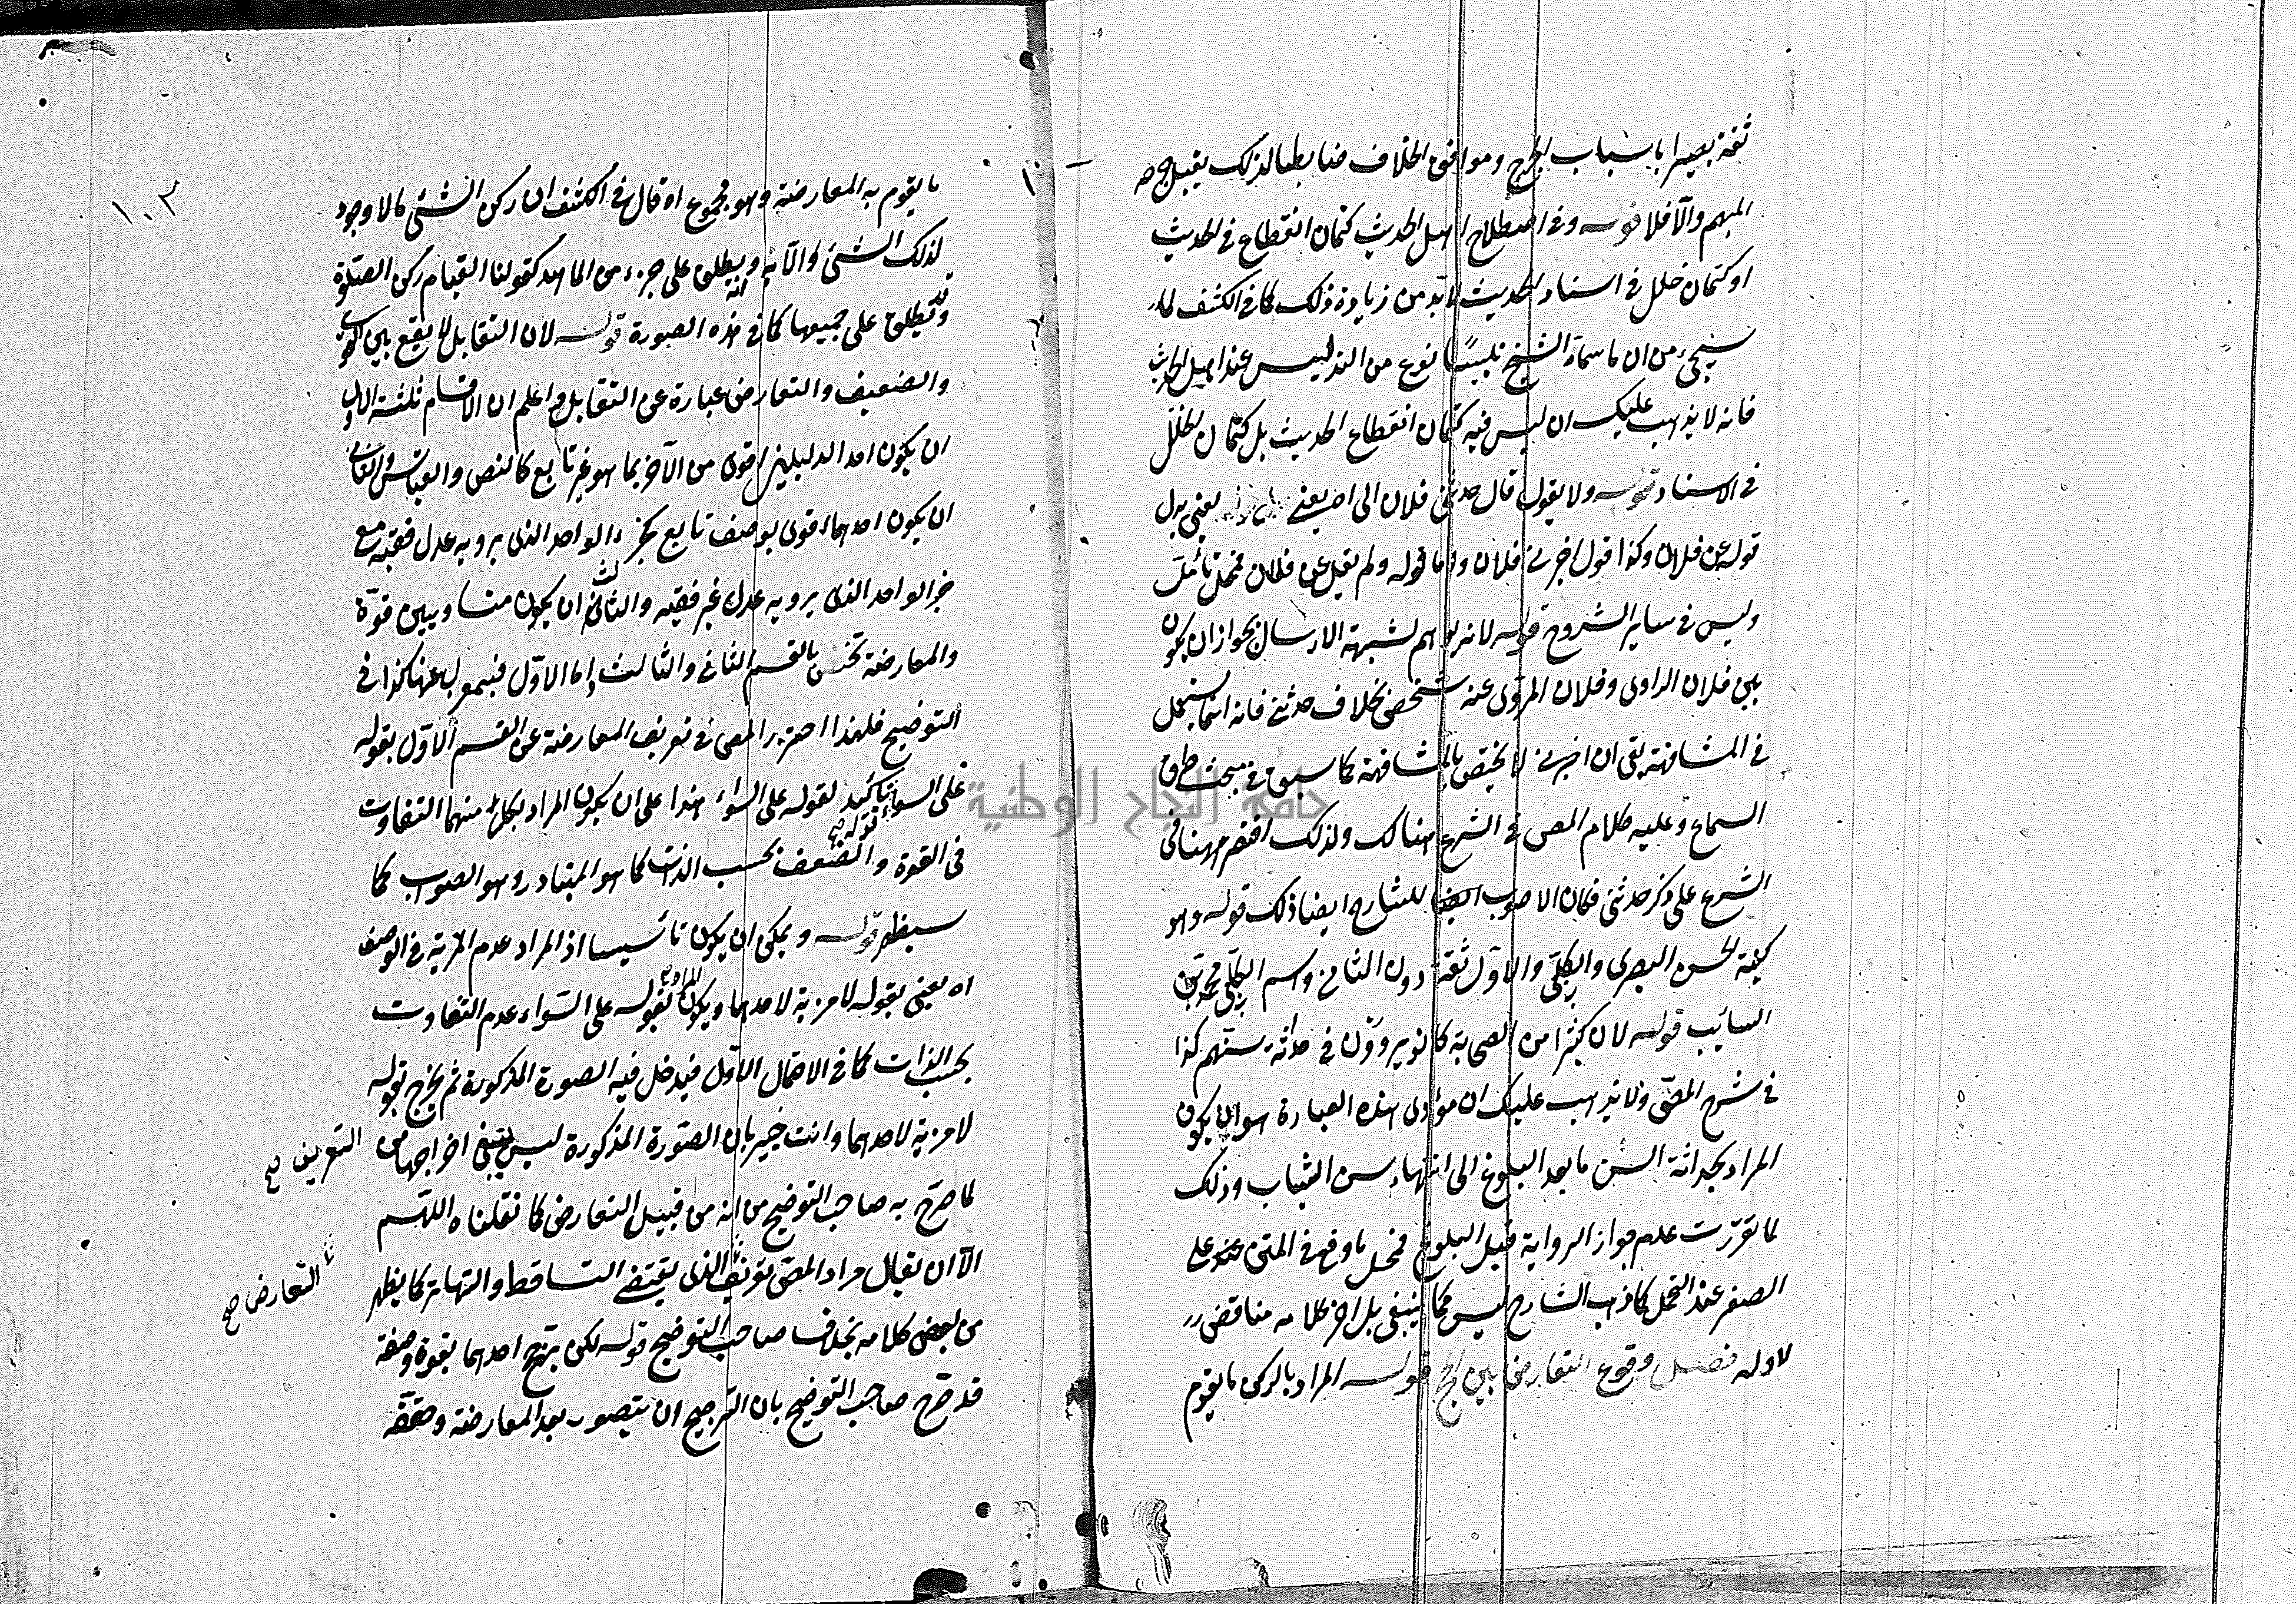 ثقة بصيرا باسباب الجرح ومواقع الخلاف ضابطا لذلك يقبل جرحه
المبهم والا فلا قوله وفي اصطلاح اهل الحديث كتمان انقطاع في الحديث
او كتمان خلل في اسناد الحديث لا بد من زيادة ذلك كما في الكشف لما
سيجيء من ان ما سماه الشيخ تلبيسا نوع من التدليس عند اهل الحديث
فانه لا يذهب عليك ان ليس فيه كتمان انقطاع الحديث بل كتمان لخلل
في الاسناد قوله ولا يقول قال حدثني فلان الى اخره يعني بدل
قوله عن فلان وكذا قول اخبرني فلان واما قوله ولم يقل عن فلان فمحل تأمل
وليس في ساير الشروح قوله لانه يوهم لشبهة الارسال بجواز ان يكون
بين فلان الراوى وفلان المروى عنه شخص بخلاف حدثني فانه انما يستعمل
في المشافهة بقى ان اخبرني لا يختص بالمشافهة كما سبق في مبحث طرق
السماع وعليه كلام المص في الشرح هنالك ولذلك اقتصر ههنا في
الشرح على ذكر حدثني فكان الاصوب ايضا للشارح ايضا ذلك قوله وهو
كنية لحسن البصرى والكلبى والاول ثقة دون الثاني واسم الكلبى محمد بن
السائب قوله لان كثيرا من الصحابة كانوا يروون في حداثة سنهم كذا
في شرح المص ولا يذهب عليك ان مؤدى هذه العبارة هو ان يكون
المراد بحداثة السن ما بعد البلوغ الى انتهاء سن الشباب وذلك
لما تقررت عدم جواز الرواية قبل البلوغ فحمل ما وقع في المتن عنده على
الصغر عند التحمل كما ذهب الشارح ليس كما ينبغي بل اخر كلامه مناقض
لاوله فصل وقوع التعارض بين الحجج قوله المراد بالركن ما يقوم
١٠٣
ما يقوم به المعارضة وهو مجموع اه قال في الكشف ان ركن الشئ ما لا وجود
لذلك الشئ الا به ويطلق على جزء من الماهية كقولنا القيام ركن الصلوة
وقد يطلق على جميعها كما في هذه الصورة قوله لان التقابل لا يقع بين القوى
والضعيف والتعارض عبارة عن التقابل واعلم ان الاقسام ثلثة الاول
ان يكون احد الدليلين اقوى من الآخر بما هو غير تابع كالنص والقياس والثاني
ان يكون احدهما اقوى بوصف تابع كخبر الواحد الذى يرويه عدل فقيه مع
خبر الواحد الذى يرويه عدل غير فقيه والثالث ان يكون متساويين قوة
والمعارضة تختص بالقسم الثاني والثالث واما الاول فبمعزل عنها كذا في
التوضيح فلهذا احترز المص في تعريف المعارضة عن القسم الاول بقوله
على السواء تأكيد لقوله على السواء هذا على ان يكون المراد بكل منهما التفاوت
في القوة والضعف بحسب الذات كما هو المتبادر وهو الصواب كما
سيظهر قوله ويمكن ان يكون تأسيسا اذ المراد عدم المزية في الوصف
اه يعني بقوله لا مزية لاحدهما ويكون المراد بقوله على السواء عدم التفاوت
بحسب الذات كما في الاحتمال الاول فيدخل فيه الصورة المذكورة ثم يخرج بقوله
لا مزية لاحدهما وانت خبير بان الصورة المذكورة ليس ينبغي اخراجها من
التعريف صح
لما صرح به صاحب التوضيح من انه من قبيل التعارض كما نقلناه اللهم
الا ان يقال مراد المص تعريف الذى يقتضى التساقط والتهاتر كما يظهر
التعارض صح
من بعض كلامه بخلاف صاحب التوضيح قوله لكن يترجح احدهما بقوة وصفه
قد صرح صاحب التوضيح بان الترجيح ان يتصور بعد المعارضة وحققه
جامعة النجاح الوطنية